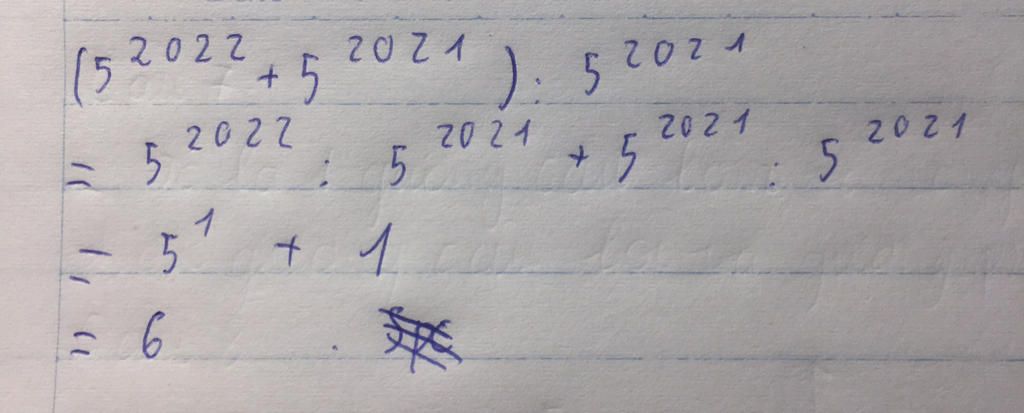 (5^2022 + 5^2021) : 5^2021
= 5^2022 : 5^2021 + 5^2021 : 5^2021
= 5^1 + 1
= 6 .